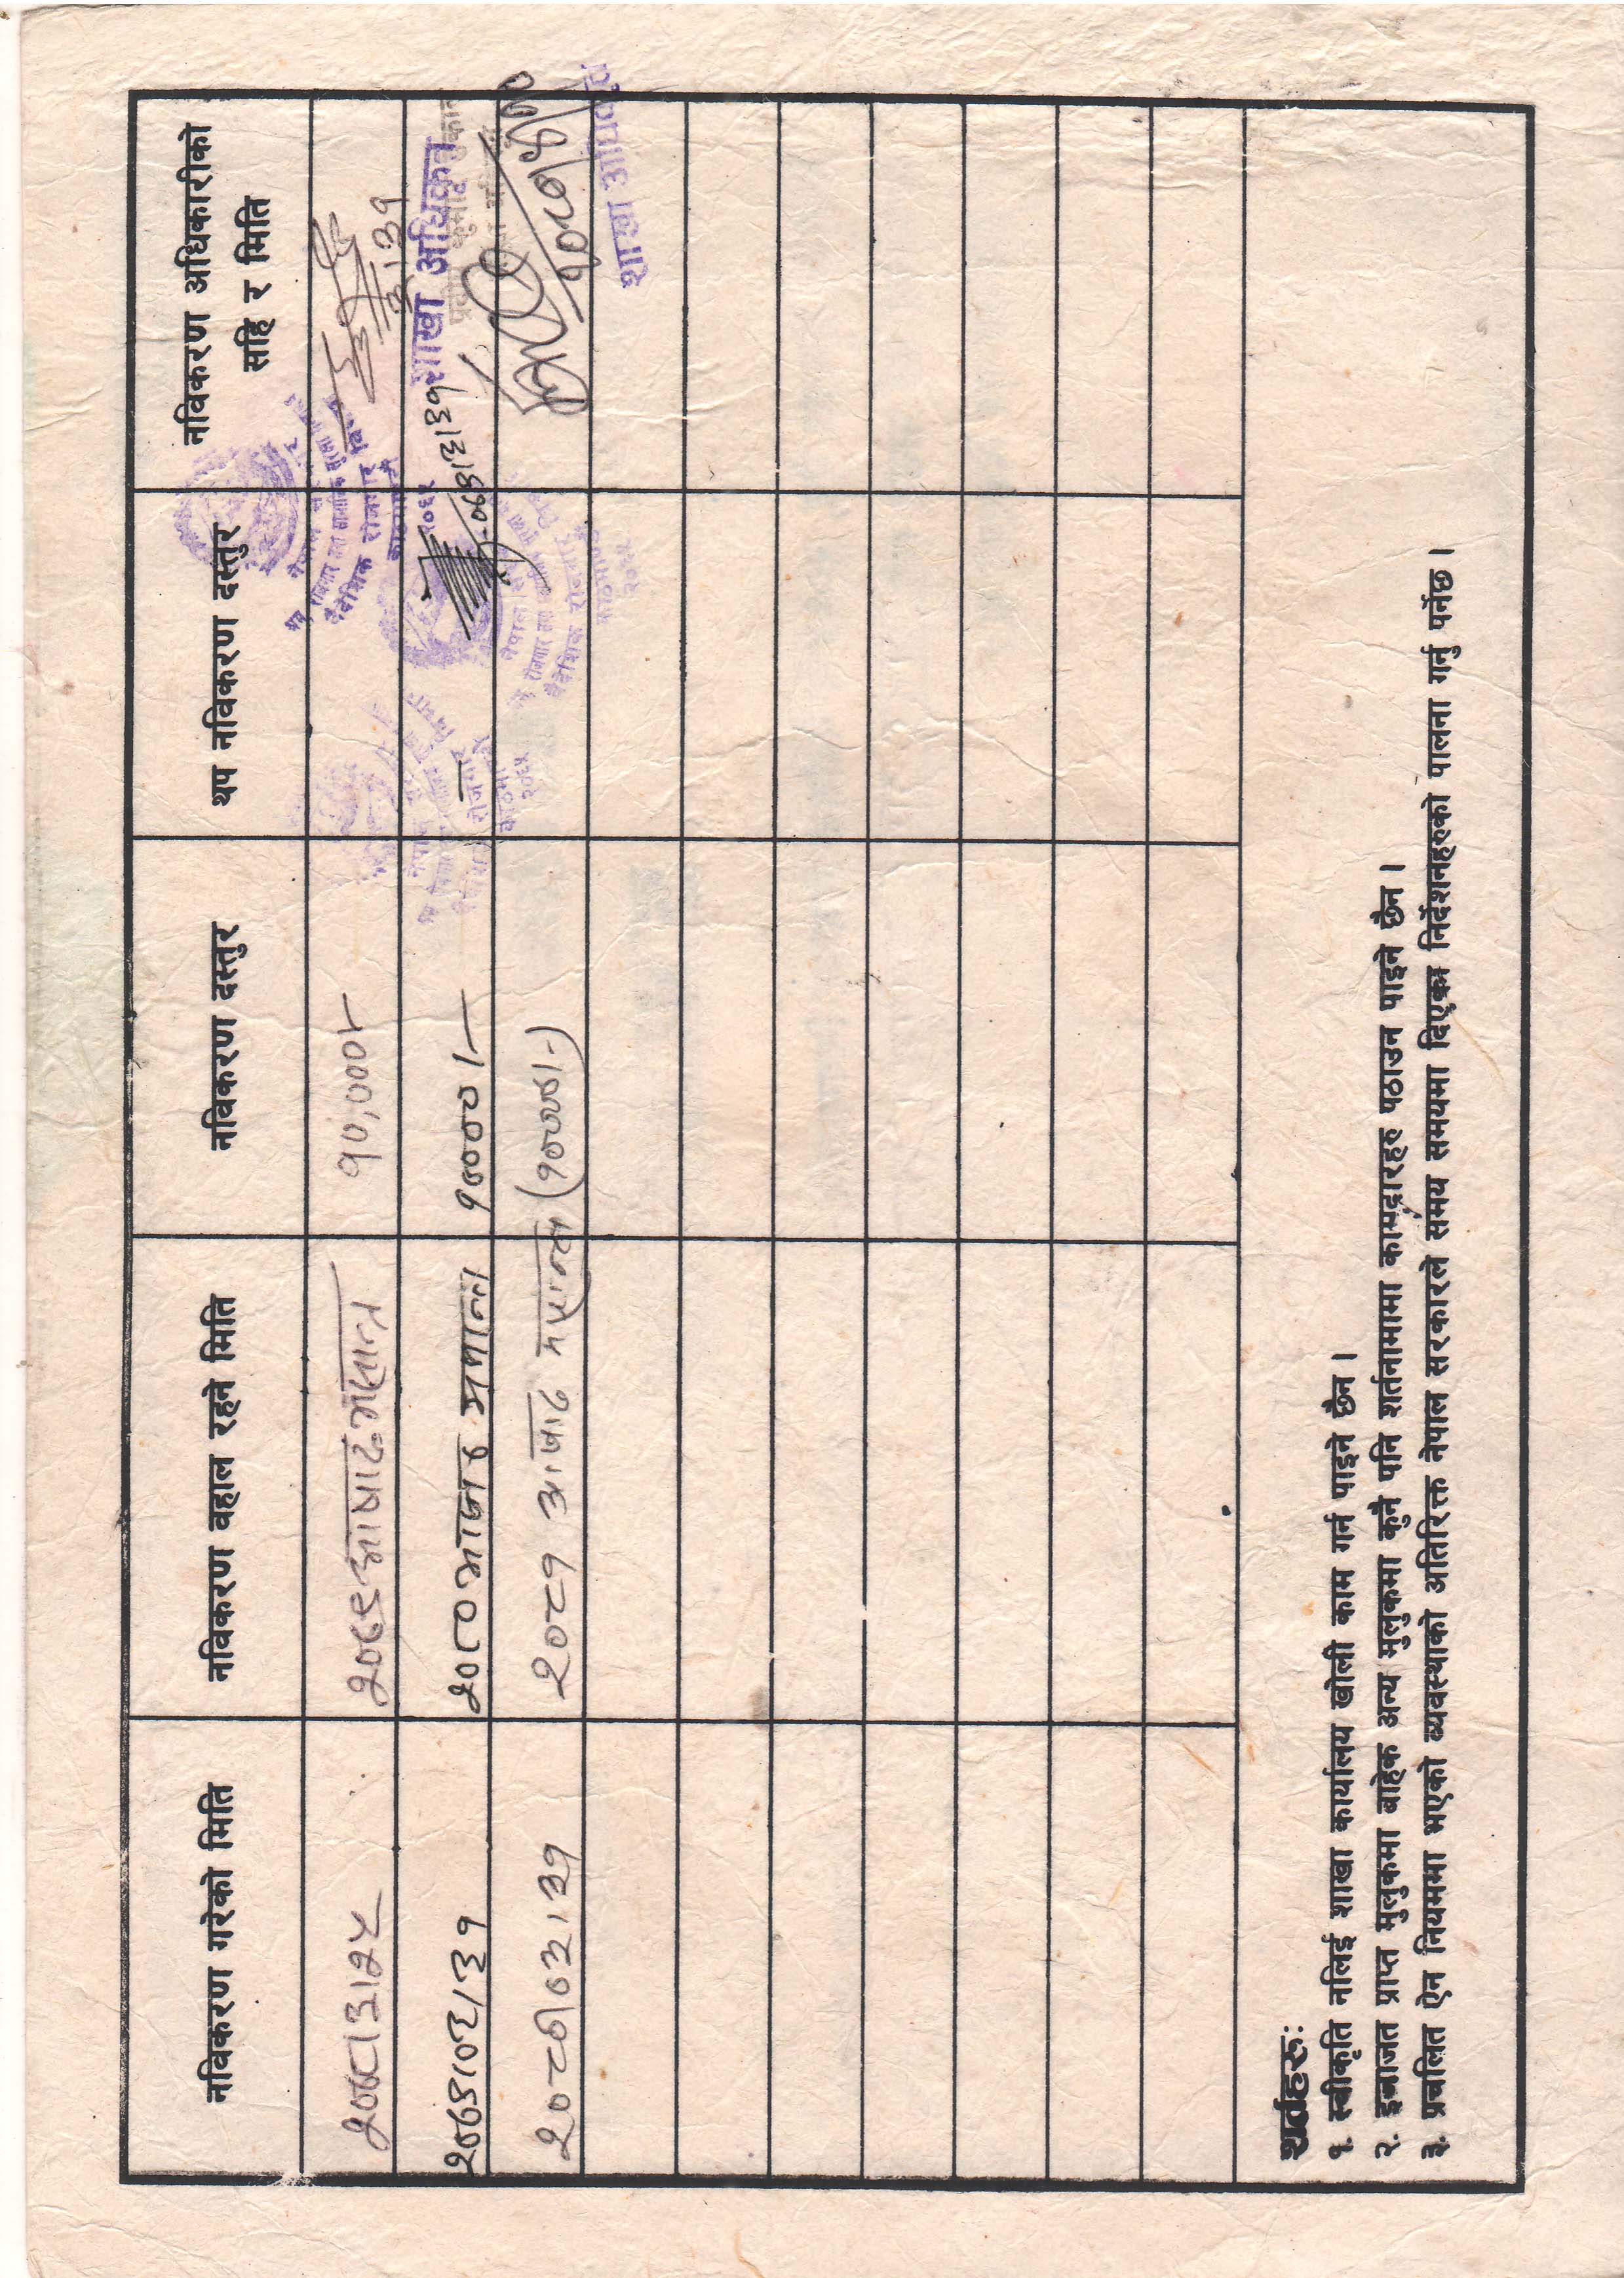 नविकरण गरेको मिति नविकरण वहाल रहने मिति नविकरण दस्तुर थप नविकरण दस्तुर नविकरण अधिकारीको
सहि र मिति
२०७८।३।२५ २०७९ आषाढ मसान्त १०,०००।- ३।३१
२०७९।०३।३१ २०८० आषाढ मसान्त १००००।- — २०७९।३।३१ शाखा अधिकृत
२०८०।०३।३१ २०८१ आषाढ मसान्त (१००००।-)
शाखा अधिकृत
शर्तहरु:
१. स्वीकृति नलिई शाखा कार्यालय खोली काम गर्न पाइने छैन ।
२. इजाजत प्राप्त मुलुकमा बाहेक अन्य मुलुकमा कुनै पनि शर्तनामामा कामदारहरु पठाउन पाइने छैन ।
३. प्रचलित ऐन नियममा भएको व्यवस्थाको अतिरिक्त नेपाल सरकारले समय समयमा दिएका निर्देशनहरुको पालना गर्नु पर्नेछ ।